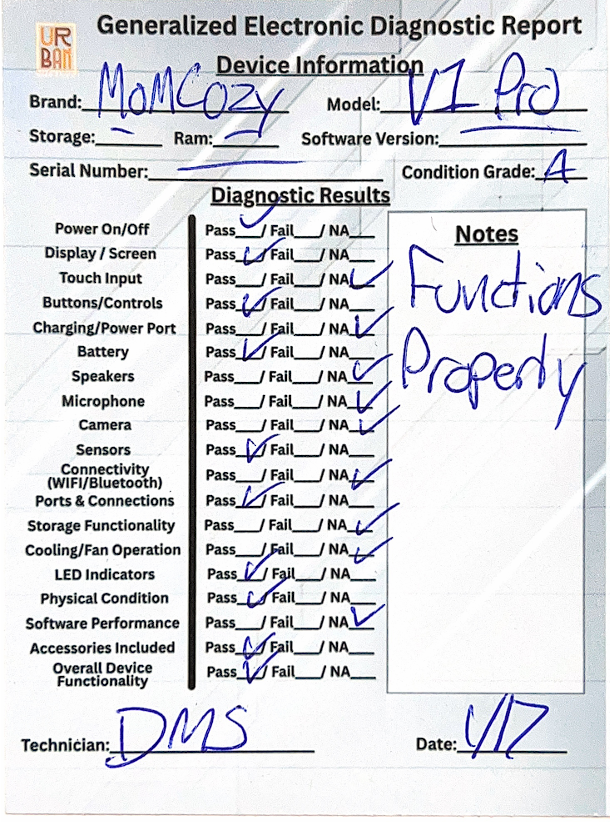 URBAN
Generalized Electronic Diagnostic Report
Device Information
Brand: MomCozy Model: V1 Pro
Storage: — Ram: — Software Version: —
Serial Number: — Condition Grade: A
Diagnostic Results
Power On/Off Pass ✓/ Fail___/ NA___
Display / Screen Pass ✓/ Fail___/ NA___
Touch Input Pass___/ Fail___/ NA ✓
Buttons/Controls Pass ✓/ Fail___/ NA___
Charging/Power Port Pass___/ Fail___/ NA ✓
Battery Pass ✓/ Fail___/ NA___
Speakers Pass___/ Fail___/ NA ✓
Microphone Pass___/ Fail___/ NA ✓
Camera Pass___/ Fail___/ NA ✓
Sensors Pass ✓/ Fail___/ NA___
Connectivity
(WIFI/Bluetooth) Pass___/ Fail___/ NA ✓
Ports & Connections Pass ✓/ Fail___/ NA___
Storage Functionality Pass___/ Fail___/ NA ✓
Cooling/Fan Operation Pass___/ Fail___/ NA ✓
LED Indicators Pass ✓/ Fail___/ NA___
Physical Condition Pass ✓/ Fail___/ NA___
Software Performance Pass___/ Fail___/ NA ✓
Accessories Included Pass ✓/ Fail___/ NA___
Overall Device
Functionality Pass ✓/ Fail___/ NA___
Notes
Functions
Properly
Technician: DMS Date: 1/17